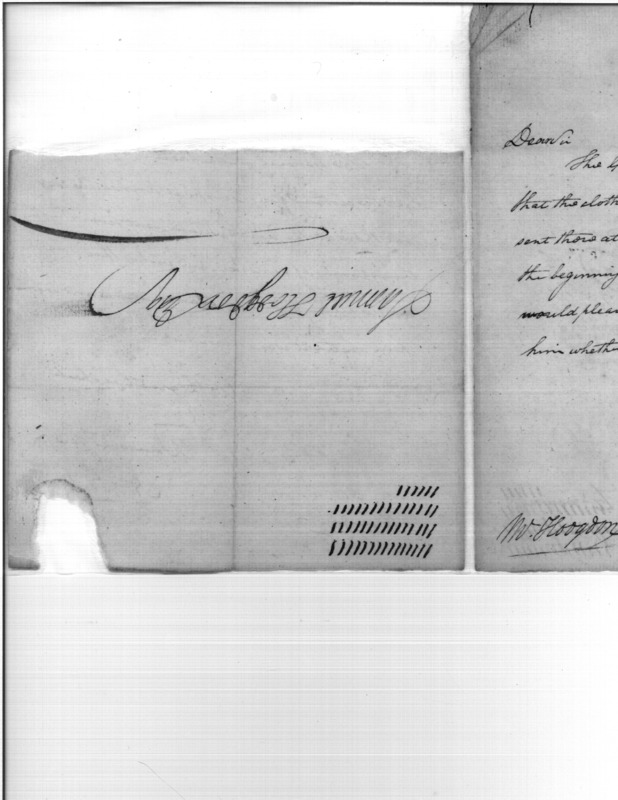 Samuel Hodgdon Esqr
Dear Sir
The
that the cloth
sent there at
the beginning
would pleas
him wheth
Mr. Hodgdon